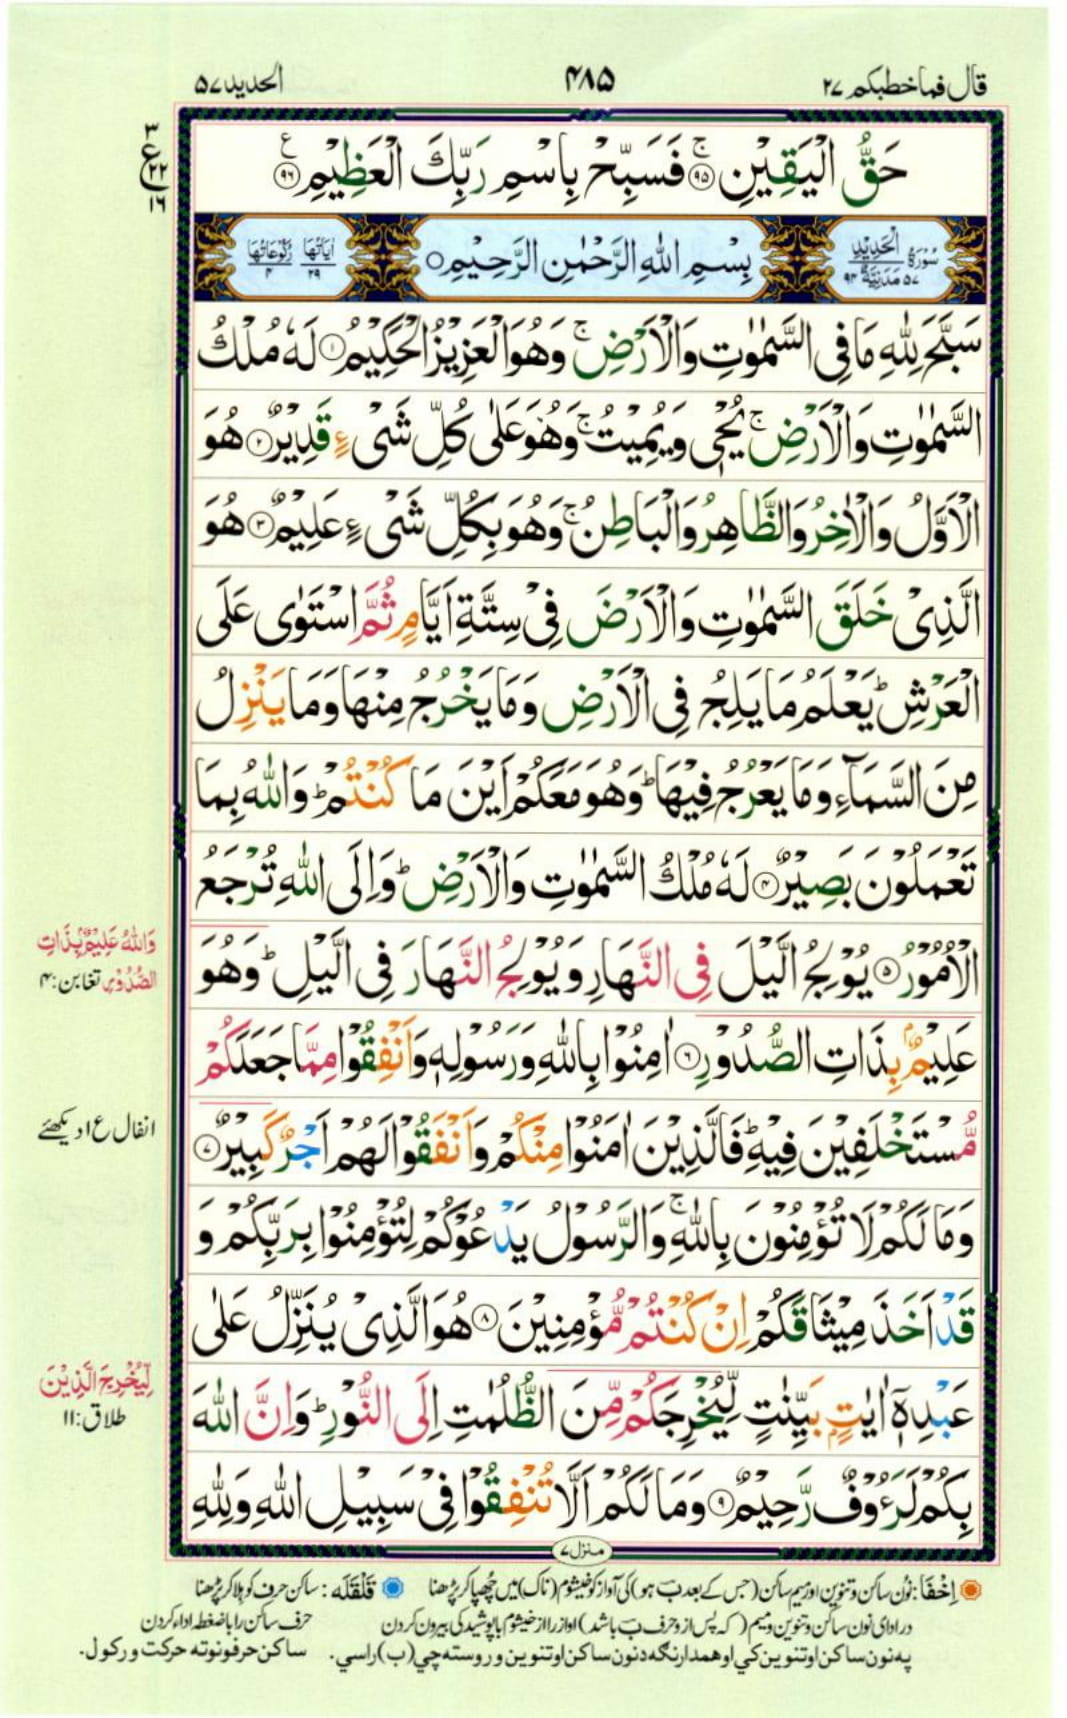 قال فما خطبكم ۲۷ ۴۸۵ الحديد ۵۷
حَقُّ الْيَقِيْنِ ۚ‏﴿۹۵﴾ فَسَبِّحْ بِاسْمِ رَبِّكَ الْعَظِيْمِ ﴿۹۶﴾ ع
۳ ع ۲۲ ۱۶
سُوْرَةُ الْحَدِيْدِ ۵۷ مَدَنِيَّةٌ ۹۴ بِسْمِ اللهِ الرَّحْمٰنِ الرَّحِيْمِ ○ اٰيَاتُهَا ۲۹ رُكُوْعَاتُهَا ۴
سَبَّحَ لِلّٰهِ مَا فِى السَّمٰوٰتِ وَالْاَرْضِ ۚ وَهُوَ الْعَزِيْزُ الْحَكِيْمُ ﴿۱﴾ لَهٗ مُلْكُ
السَّمٰوٰتِ وَالْاَرْضِ ۚ يُحْيٖ وَيُمِيْتُ ۚ وَهُوَ عَلٰى كُلِّ شَىْءٍ قَدِيْرٌ ﴿۲﴾ هُوَ
الْاَوَّلُ وَالْاٰخِرُ وَالظَّاهِرُ وَالْبَاطِنُ ۚ وَهُوَ بِكُلِّ شَىْءٍ عَلِيْمٌ ﴿۳﴾ هُوَ
الَّذِىْ خَلَقَ السَّمٰوٰتِ وَالْاَرْضَ فِىْ سِتَّةِ اَيَّامٍ ثُمَّ اسْتَوٰى عَلَى
الْعَرْشِ ؕ يَعْلَمُ مَا يَلِجُ فِى الْاَرْضِ وَمَا يَخْرُجُ مِنْهَا وَمَا يَنْزِلُ
مِنَ السَّمَآءِ وَمَا يَعْرُجُ فِيْهَا ؕ وَهُوَ مَعَكُمْ اَيْنَ مَا كُنْتُمْ ؕ وَاللهُ بِمَا
تَعْمَلُوْنَ بَصِيْرٌ ﴿۴﴾ لَهٗ مُلْكُ السَّمٰوٰتِ وَالْاَرْضِ ؕ وَاِلَى اللهِ تُرْجَعُ
الْاُمُوْرُ ﴿۵﴾ يُوْلِجُ الَّيْلَ فِى النَّهَارِ وَيُوْلِجُ النَّهَارَ فِى الَّيْلِ ؕ وَهُوَ
وَاللهُ عَلِيْمٌۢ بِذَاتِ
الصُّدُوْرِ تغابن: ۴
عَلِيْمٌۢ بِذَاتِ الصُّدُوْرِ ﴿۶﴾ اٰمِنُوْا بِاللهِ وَرَسُوْلِهٖ وَاَنْفِقُوْا مِمَّا جَعَلَكُمْ
مُّسْتَخْلَفِيْنَ فِيْهِ ؕ فَالَّذِيْنَ اٰمَنُوْا مِنْكُمْ وَاَنْفَقُوْا لَهُمْ اَجْرٌ كَبِيْرٌ ﴿۷﴾
انفال ع ۱ دیکھئے
وَمَا لَكُمْ لَا تُؤْمِنُوْنَ بِاللهِ ۚ وَالرَّسُوْلُ يَدْعُوْكُمْ لِتُؤْمِنُوْا بِرَبِّكُمْ وَ
قَدْ اَخَذَ مِيْثَاقَكُمْ اِنْ كُنْتُمْ مُّؤْمِنِيْنَ ﴿۸﴾ هُوَ الَّذِىْ يُنَزِّلُ عَلٰى
عَبْدِهٖۤ اٰيٰتٍۢ بَيِّنٰتٍ لِّيُخْرِجَكُمْ مِّنَ الظُّلُمٰتِ اِلَى النُّوْرِ ؕ وَاِنَّ اللهَ
لِّيُخْرِجَ الَّذِيْنَ
طلاق: ۱۱
بِكُمْ لَرَءُوْفٌ رَّحِيْمٌ ﴿۹﴾ وَمَا لَكُمْ اَلَّا تُنْفِقُوْا فِىْ سَبِيْلِ اللهِ وَلِلّٰهِ
منزل ۷
اِخْفَا: نُون ساکن و تنوین اور میم ساکن (جس کے بعد ب ہو) کی آواز کو خیشوم (ناک) میں چُھپا کر پڑھنا قَلْقَلَه: ساکن حرف کو ہلا کر پڑھنا
در ادای نون ساکن و تنوین و میم (که پس از و حرف ب باشد) آواز را از خیشوم با پوشیدگی بیرون کردن حرف ساکن را باضغطه اداء کردن
په نون ساکن او تنوین کي او همدارنګه د نون ساکن او تنوین و روسته چي (ب) راسي. ساکن حرفونو ته حرکت ورکول.